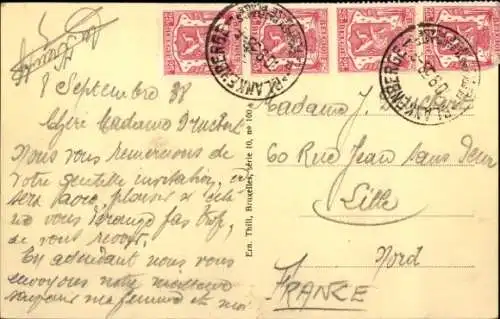 8 Septembre 38
Chère Madame
Nous vous remercions de
votre gentille invitation, ce
sera avec plaisir si cela
ne vous dérange pas trop,
de vous revoir.
En attendant nous vous
envoyons notre meilleur
ma femme et moi
Ern. Thill, Bruxelles, série 10, no 100
BLANKENBERGE
BLANKENBERGE
Madame J.
60 Rue Jean sans Peur
Lille
Nord
FRANCE